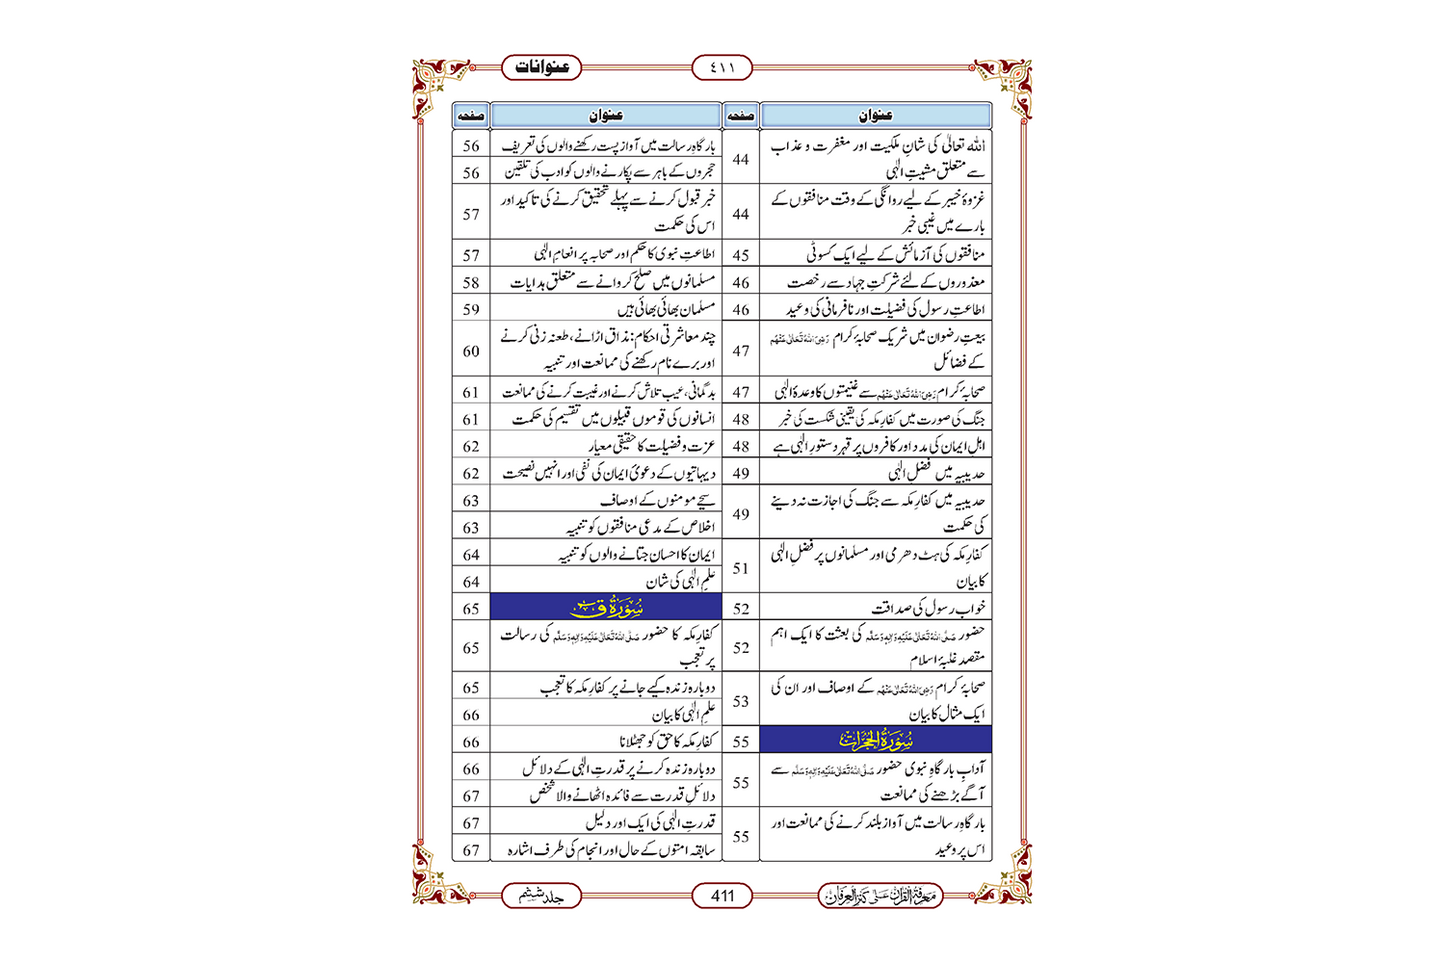 عنوانات
٤١١
عنوان
صفحہ
عنوان
صفحہ
اللہ تعالیٰ کی شانِ ملکیت اور مغفرت و عذاب
سے متعلق مشیتِ الٰہی
44
غزوۂ خیبر کے لیے روانگی کے وقت منافقوں کے
بارے میں غیبی خبر
44
منافقوں کی آزمائش کے لیے ایک کسوٹی
45
معذوروں کے لئے شرکتِ جہاد سے رخصت
46
اطاعتِ رسول کی فضیلت اور نافرمانی کی وعید
46
بیعتِ رضوان میں شریک صحابۂ کرام رَضِیَ اللہُ تَعَالٰی عَنْہُم
کے فضائل
47
صحابۂ کرام رَضِیَ اللہُ تَعَالٰی عَنْہُم سے غنیمتوں کا وعدۂ الٰہی
47
جنگ کی صورت میں کفارِ مکہ کی یقینی شکست کی خبر
48
اہلِ ایمان کی مدد اور کافروں پر قہر دستورِ الٰہی ہے
48
حدیبیہ میں فضل الٰہی
49
حدیبیہ میں کفارِ مکہ سے جنگ کی اجازت نہ دینے
کی حکمت
49
کفارِ مکہ کی ہٹ دھرمی اور مسلمانوں پر فضلِ الٰہی
کا بیان
51
خوابِ رسول کی صداقت
52
حضور صَلَّی اللہُ تَعَالٰی عَلَیْہِ وَاٰلِہٖ وَسَلَّم کی بعثت کا ایک اہم
مقصد غلبۂ اسلام
52
صحابۂ کرام رَضِیَ اللہُ تَعَالٰی عَنْہُم کے اوصاف اور ان کی
ایک مثال کا بیان
53
سُوْرَۃُ الْحُجُرَات
55
آدابِ بارگاہِ نبوی حضور صَلَّی اللہُ تَعَالٰی عَلَیْہِ وَاٰلِہٖ وَسَلَّم سے
آگے بڑھنے کی ممانعت
55
بارگاہِ رسالت میں آواز بلند کرنے کی ممانعت اور
اس پر وعید
55
بارگاہِ رسالت میں آواز پست رکھنے والوں کی تعریف
56
حجروں کے باہر سے پکارنے والوں کو ادب کی تلقین
56
خبر قبول کرنے سے پہلے تحقیق کرنے کی تاکید اور
اس کی حکمت
57
اطاعتِ نبوی کا حکم اور صحابہ پر انعامِ الٰہی
57
مسلمانوں میں صلح کروانے سے متعلق ہدایات
58
مسلمان بھائی بھائی ہیں
59
چند معاشرتی احکام: مذاق اڑانے، طعنہ زنی کرنے
اور برے نام رکھنے کی ممانعت اور تنبیہ
60
بدگمانی، عیب تلاش کرنے اور غیبت کرنے کی ممانعت
61
انسانوں کی قوموں قبیلوں میں تقسیم کی حکمت
61
عزت و فضیلت کا حقیقی معیار
62
دیہاتیوں کے دعویٔ ایمان کی نفی اور انہیں نصیحت
62
سچے مومنوں کے اوصاف
63
اخلاص کے مدعی منافقوں کو تنبیہ
63
ایمان کا احسان جتانے والوں کو تنبیہ
64
علمِ الٰہی کی شان
64
سُوْرَۃُ قٓ
65
کفارِ مکہ کا حضور صَلَّی اللہُ تَعَالٰی عَلَیْہِ وَاٰلِہٖ وَسَلَّم کی رسالت
پر تعجب
65
دوبارہ زندہ کیے جانے پر کفارِ مکہ کا تعجب
65
علمِ الٰہی کا بیان
66
کفارِ مکہ کا حق کو جھٹلانا
66
دوبارہ زندہ کرنے پر قدرتِ الٰہی کے دلائل
66
دلائلِ قدرت سے فائدہ اٹھانے والا شخص
67
قدرتِ الٰہی کی ایک اور دلیل
67
سابقہ امتوں کے حال اور انجام کی طرف اشارہ
67
معرفۃ القرآن علٰی کنز العرفان
411
جلد ششم